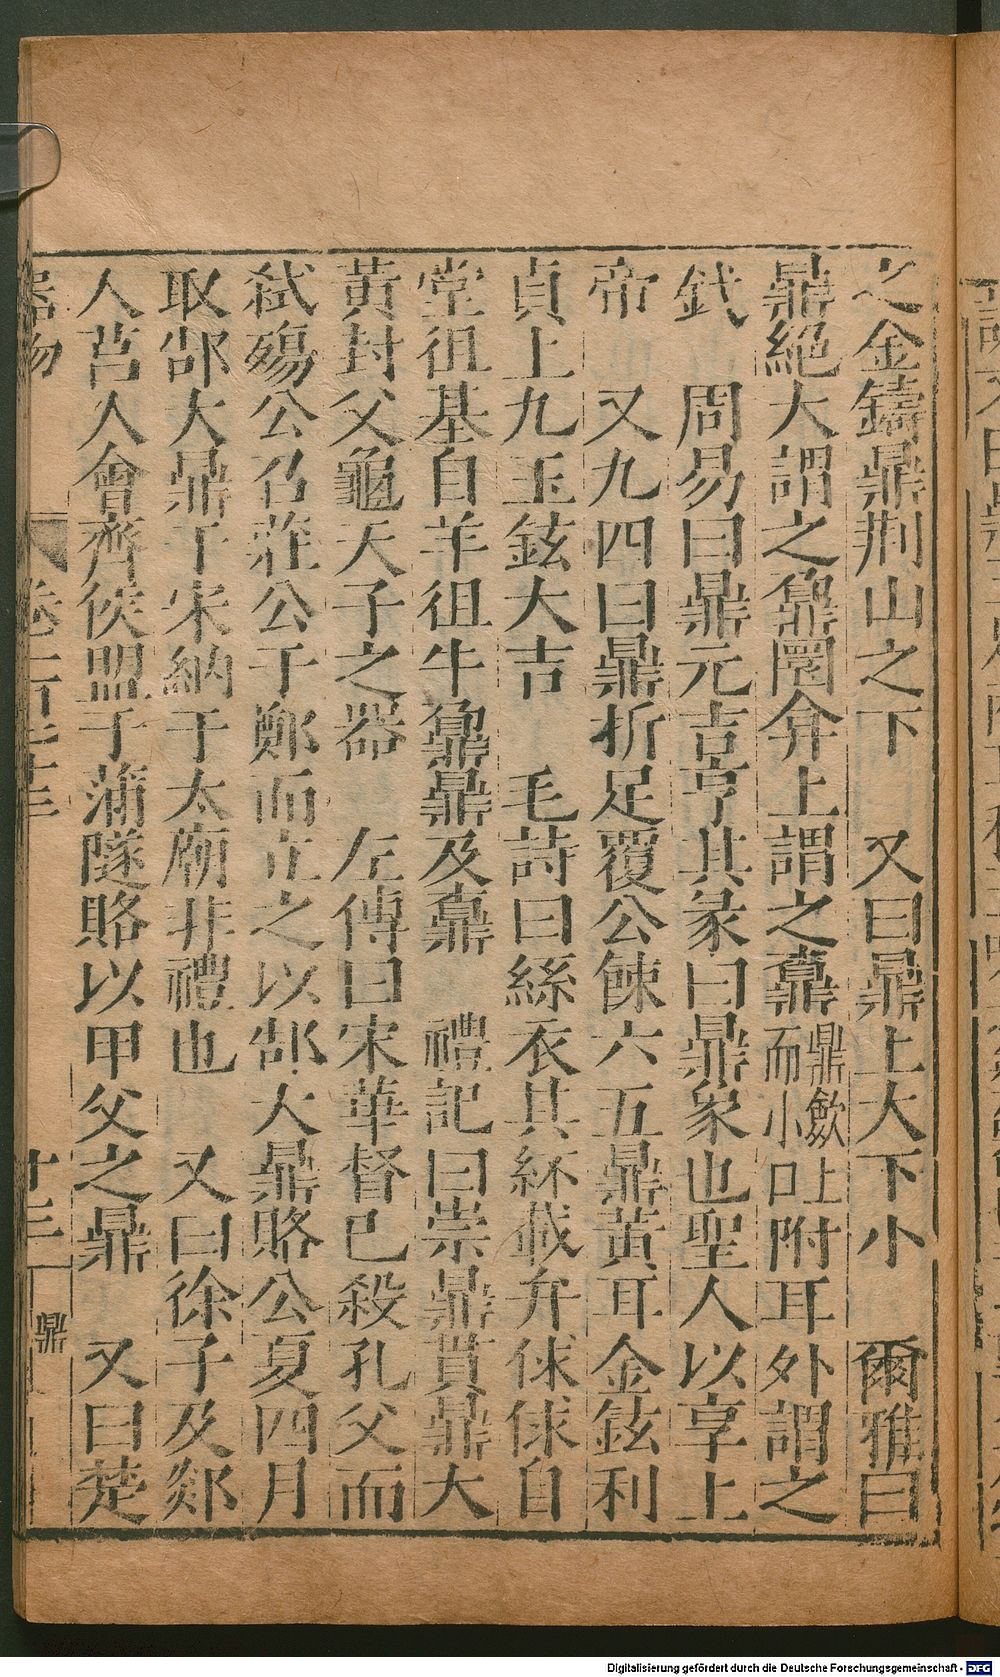 之金鑄鼎荆山之下　又曰鼎上大下小　爾雅曰
鼎絕大謂之鼐圜弇上謂之鼒鼎斂上而小口附耳外謂之
釴　周易曰鼎元吉亨其彖曰鼎象也聖人以享上
帝　又九四曰鼎折足覆公餗六五鼎黃耳金鉉利
貞上九玉鉉大吉　毛詩曰絲衣其紑載弁俅俅自
堂徂基自羊徂牛鼐鼎及鼒　禮記曰崇鼎貫鼎大
黃封父龜天子之器　左傳曰宋華督已殺孔父而
弒殤公召莊公于鄭而立之以郜大鼎賂公夏四月
取郜大鼎于宋納于太廟非禮也　又曰徐子及郯
人莒人會齊侯盟于蒲隧賂以甲父之鼎　又曰楚
器物
十三
鼎
Digitalisierung gefördert durch die Deutsche Forschungsgemeinschaft - DFG